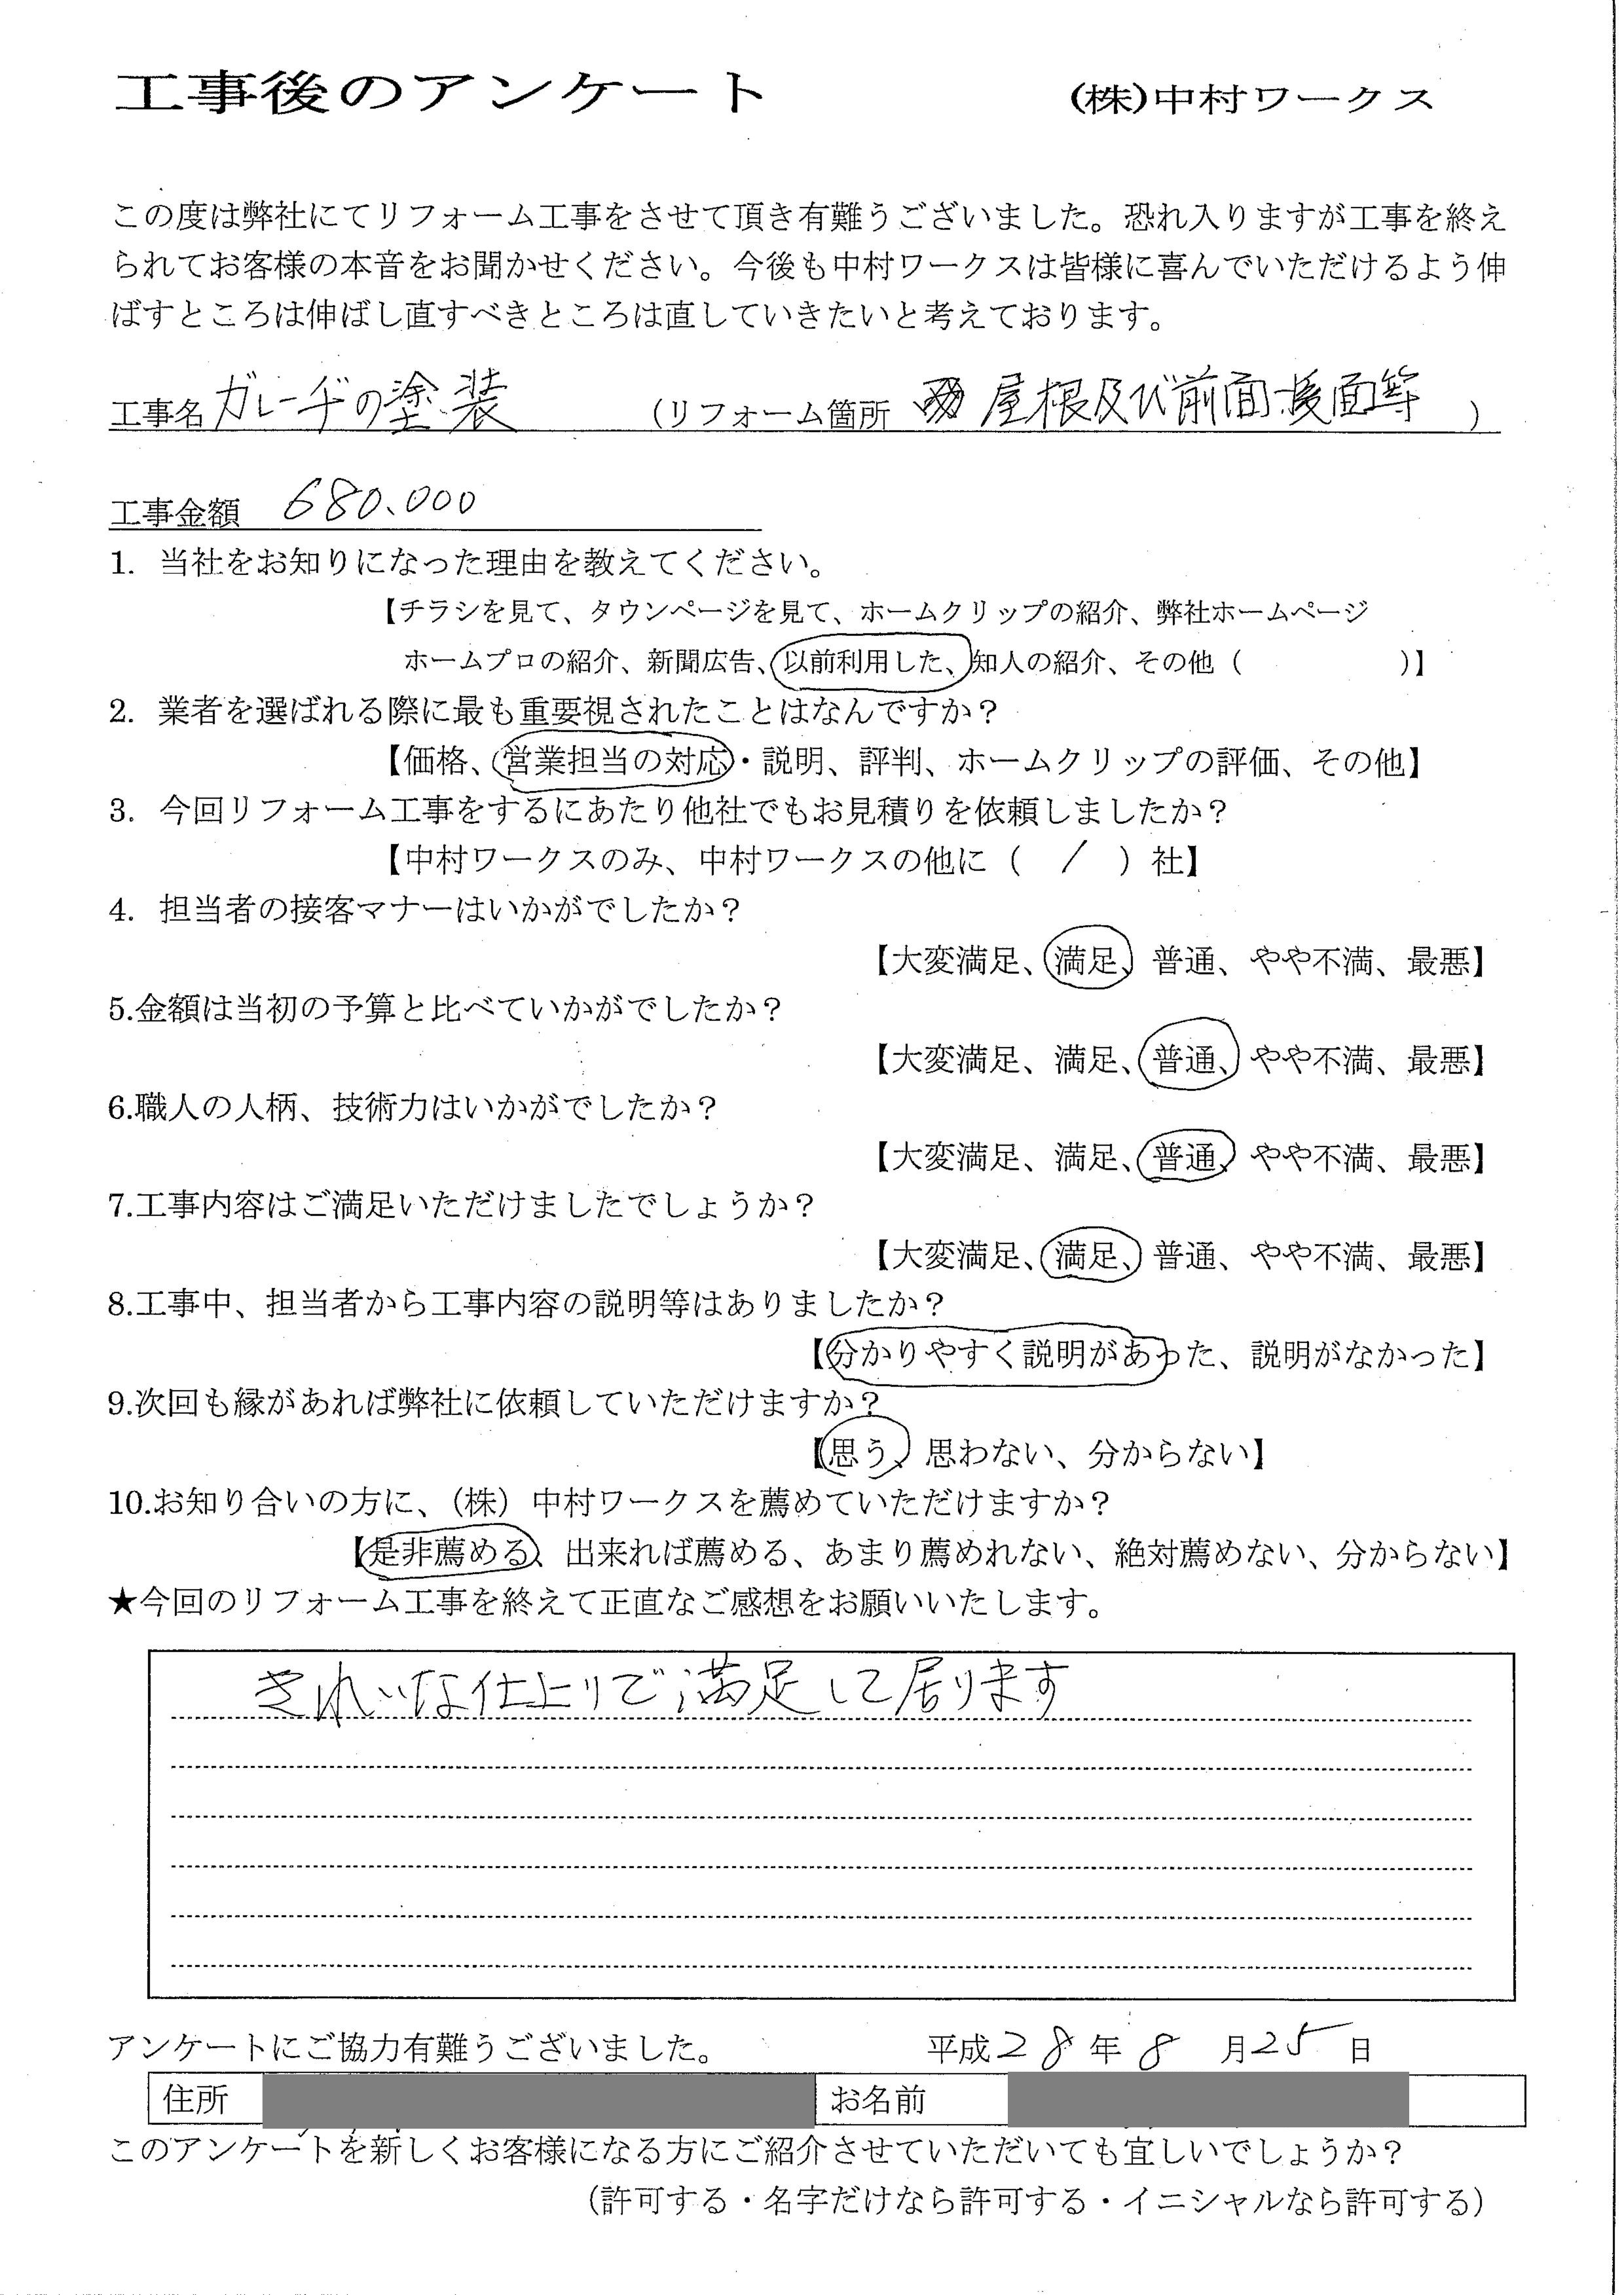 工事後のアンケート (株)中村ワークス
この度は弊社にてリフォーム工事をさせて頂き有難うございました。恐れ入りますが工事を終え
られてお客様の本音をお聞かせください。今後も中村ワークスは皆様に喜んでいただけるよう伸
ばすところは伸ばし直すべきところは直していきたいと考えております。
工事名 ガレーヂの塗装 (リフォーム箇所 屋根及び前面後面等 )
工事金額 680.000
1. 当社をお知りになった理由を教えてください。
【チラシを見て、タウンページを見て、ホームクリップの紹介、弊社ホームページ
ホームプロの紹介、新聞広告、以前利用した、知人の紹介、その他 ( )】
2. 業者を選ばれる際に最も重要視されたことはなんですか？
【価格、営業担当の対応・説明、評判、ホームクリップの評価、その他】
3. 今回リフォーム工事をするにあたり他社でもお見積りを依頼しましたか？
【中村ワークスのみ、中村ワークスの他に ( / ) 社】
4. 担当者の接客マナーはいかがでしたか？
【大変満足、満足、普通、やや不満、最悪】
5.金額は当初の予算と比べていかがでしたか？
【大変満足、満足、普通、やや不満、最悪】
6.職人の人柄、技術力はいかがでしたか？
【大変満足、満足、普通、やや不満、最悪】
7.工事内容はご満足いただけましたでしょうか？
【大変満足、満足、普通、やや不満、最悪】
8.工事中、担当者から工事内容の説明等はありましたか？
【分かりやすく説明があった、説明がなかった】
9.次回も縁があれば弊社に依頼していただけますか？
【思う、思わない、分からない】
10.お知り合いの方に、(株) 中村ワークスを薦めていただけますか？
【是非薦める、出来れば薦める、あまり薦めれない、絶対薦めない、分からない】
★今回のリフォーム工事を終えて正直なご感想をお願いいたします。
きれいな仕上りで満足して居ります
アンケートにご協力有難うございました。 平成28年8月25日
住所 お名前
このアンケートを新しくお客様になる方にご紹介させていただいても宜しいでしょうか？
(許可する・名字だけなら許可する・イニシャルなら許可する)